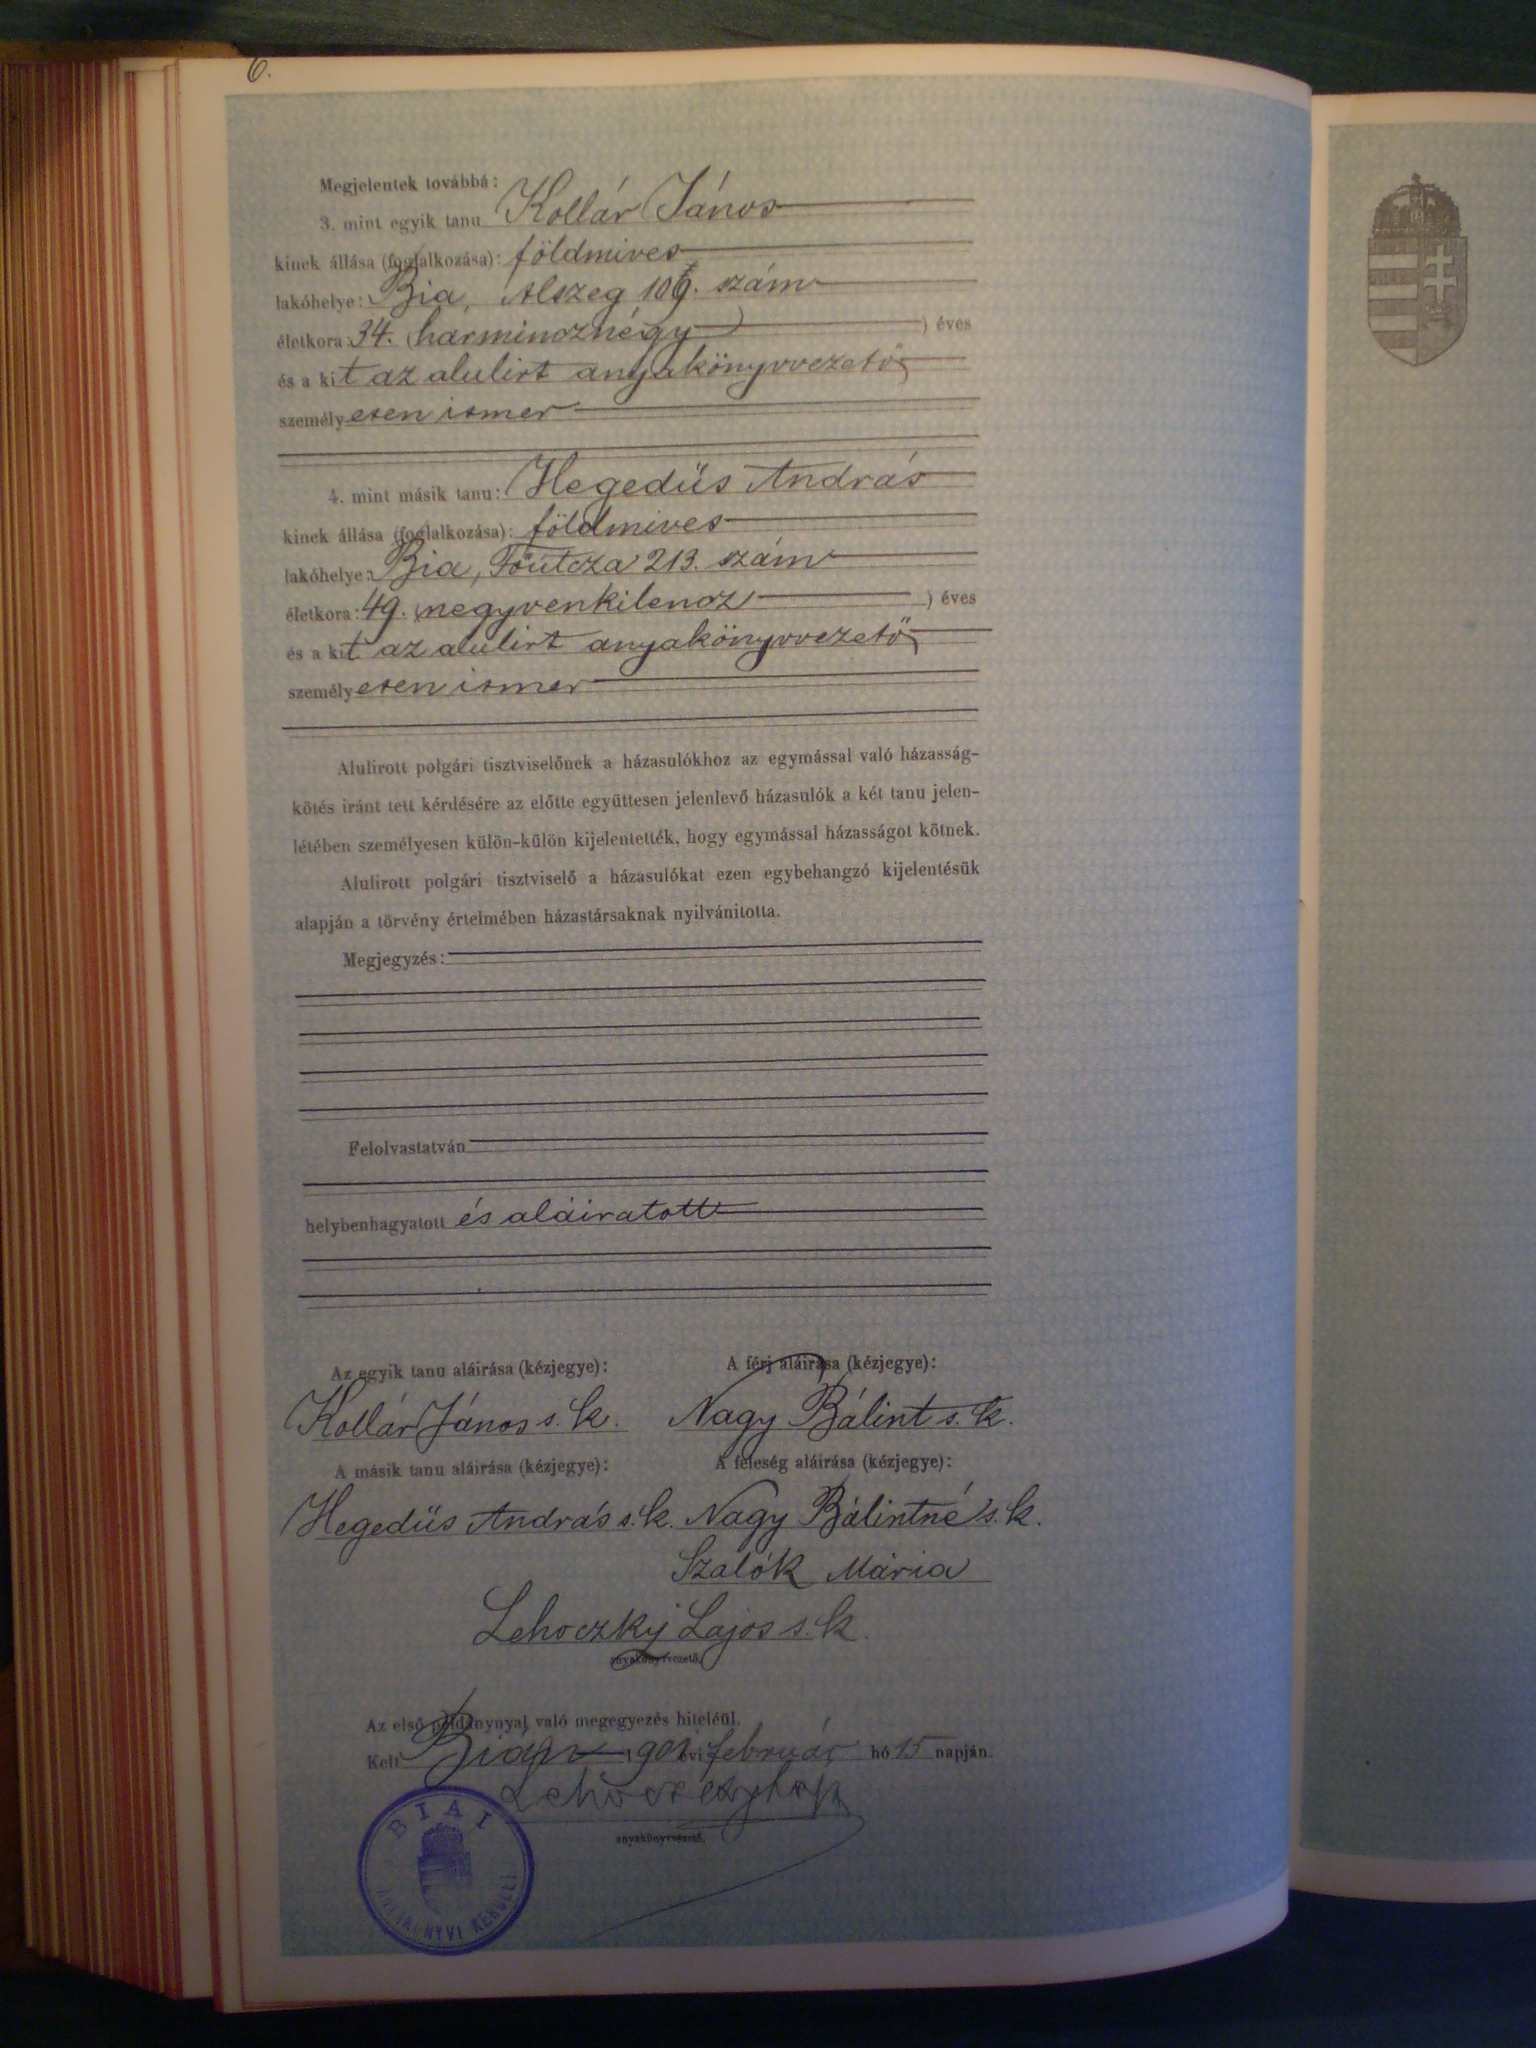 6.
Megjelentek továbbá:
3. mint egyik tanu Kollár János
kinek állása (foglalkozása): földmives
lakóhelye: Bia, Alszeg szám
életkora: 34. (harmincznégy) éves
és a kit az alulirt anyakönyvvezető
személyesen ismer
4. mint másik tanu: Hegedüs András
kinek állása (foglalkozása): földmives
lakóhelye: Bia, Főutcza 213. szám
életkora: 49. (negyvenkilencz) éves
és a kit az alulirt anyakönyvvezető
személyesen ismer
Alulirott polgári tisztviselőnek a házasulókhoz az egymással való házasság-
kötés iránt tett kérdésére az előtte együttesen jelenlevő házasulók a két tanu jelen-
létében személyesen külön-külön kijelentették, hogy egymással házasságot kötnek.
Alulirott polgári tisztviselő a házasulókat ezen egybehangzó kijelentésük
alapján a törvény értelmében házastársaknak nyilvánitotta.
Megjegyzés:
Felolvastatván
helybenhagyatott és aláiratott
Az egyik tanu aláirása (kézjegye): A férj aláirása (kézjegye):
Kollár János s. k. Nagy Bálint s. k.
A másik tanu aláirása (kézjegye): A feleség aláirása (kézjegye):
Hegedüs András s. k. Nagy Bálintné s. k.
Szalók Mária
Lehoczky Lajos s. k.
anyakönyvvezető.
Az első példánynyal való megegyezés hiteléül.
Kelt Bián 1901 évi február hó 15 napján.
anyakönyvvezető.
BIAI
ANYAKÖNYVI KERÜLET